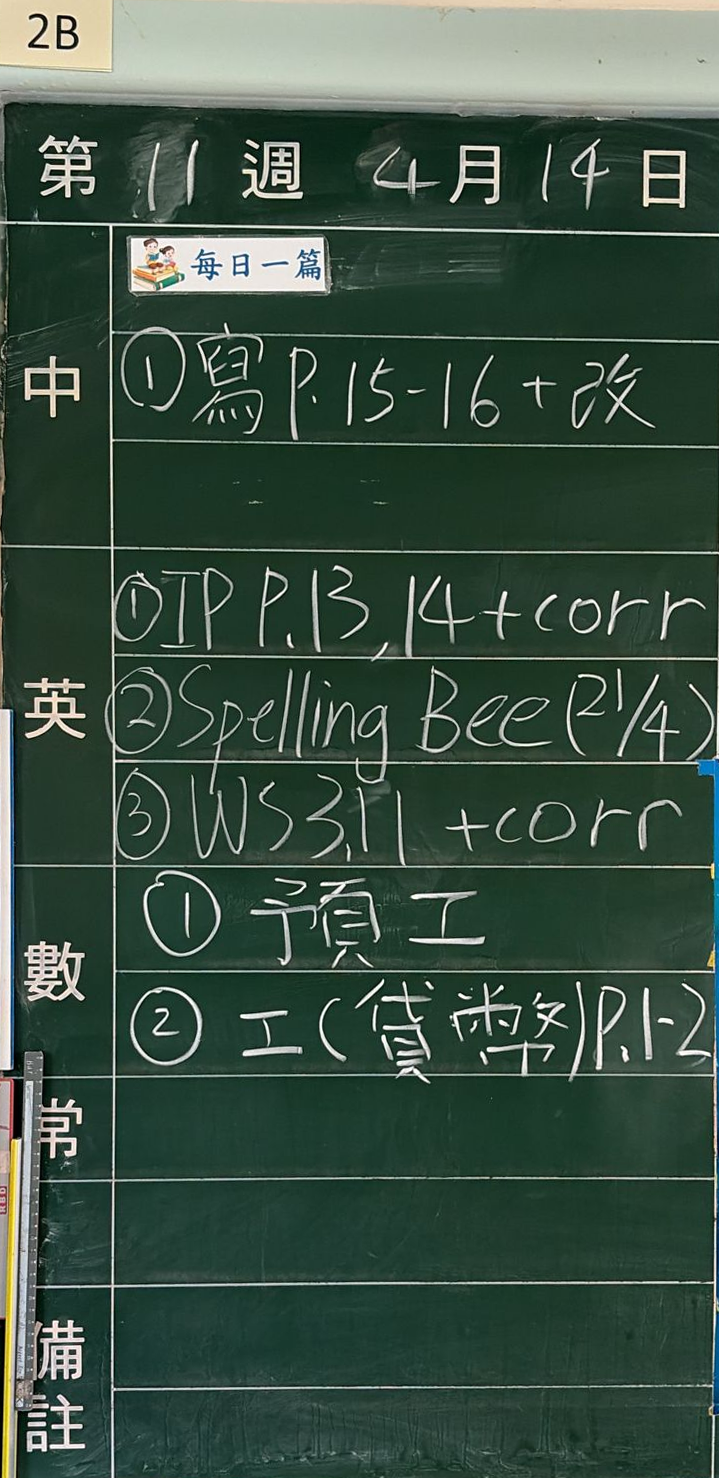 2B
第 11 週 4 月 14 日
每日一篇
中
① 寫 P. 15-16 + 改
英
① IP P.13, 14 + corr
② Spelling Bee (21/4)
③ WS 3.11 + corr
數
① 預工
② 工(貨幣) P.1-2
常
備註